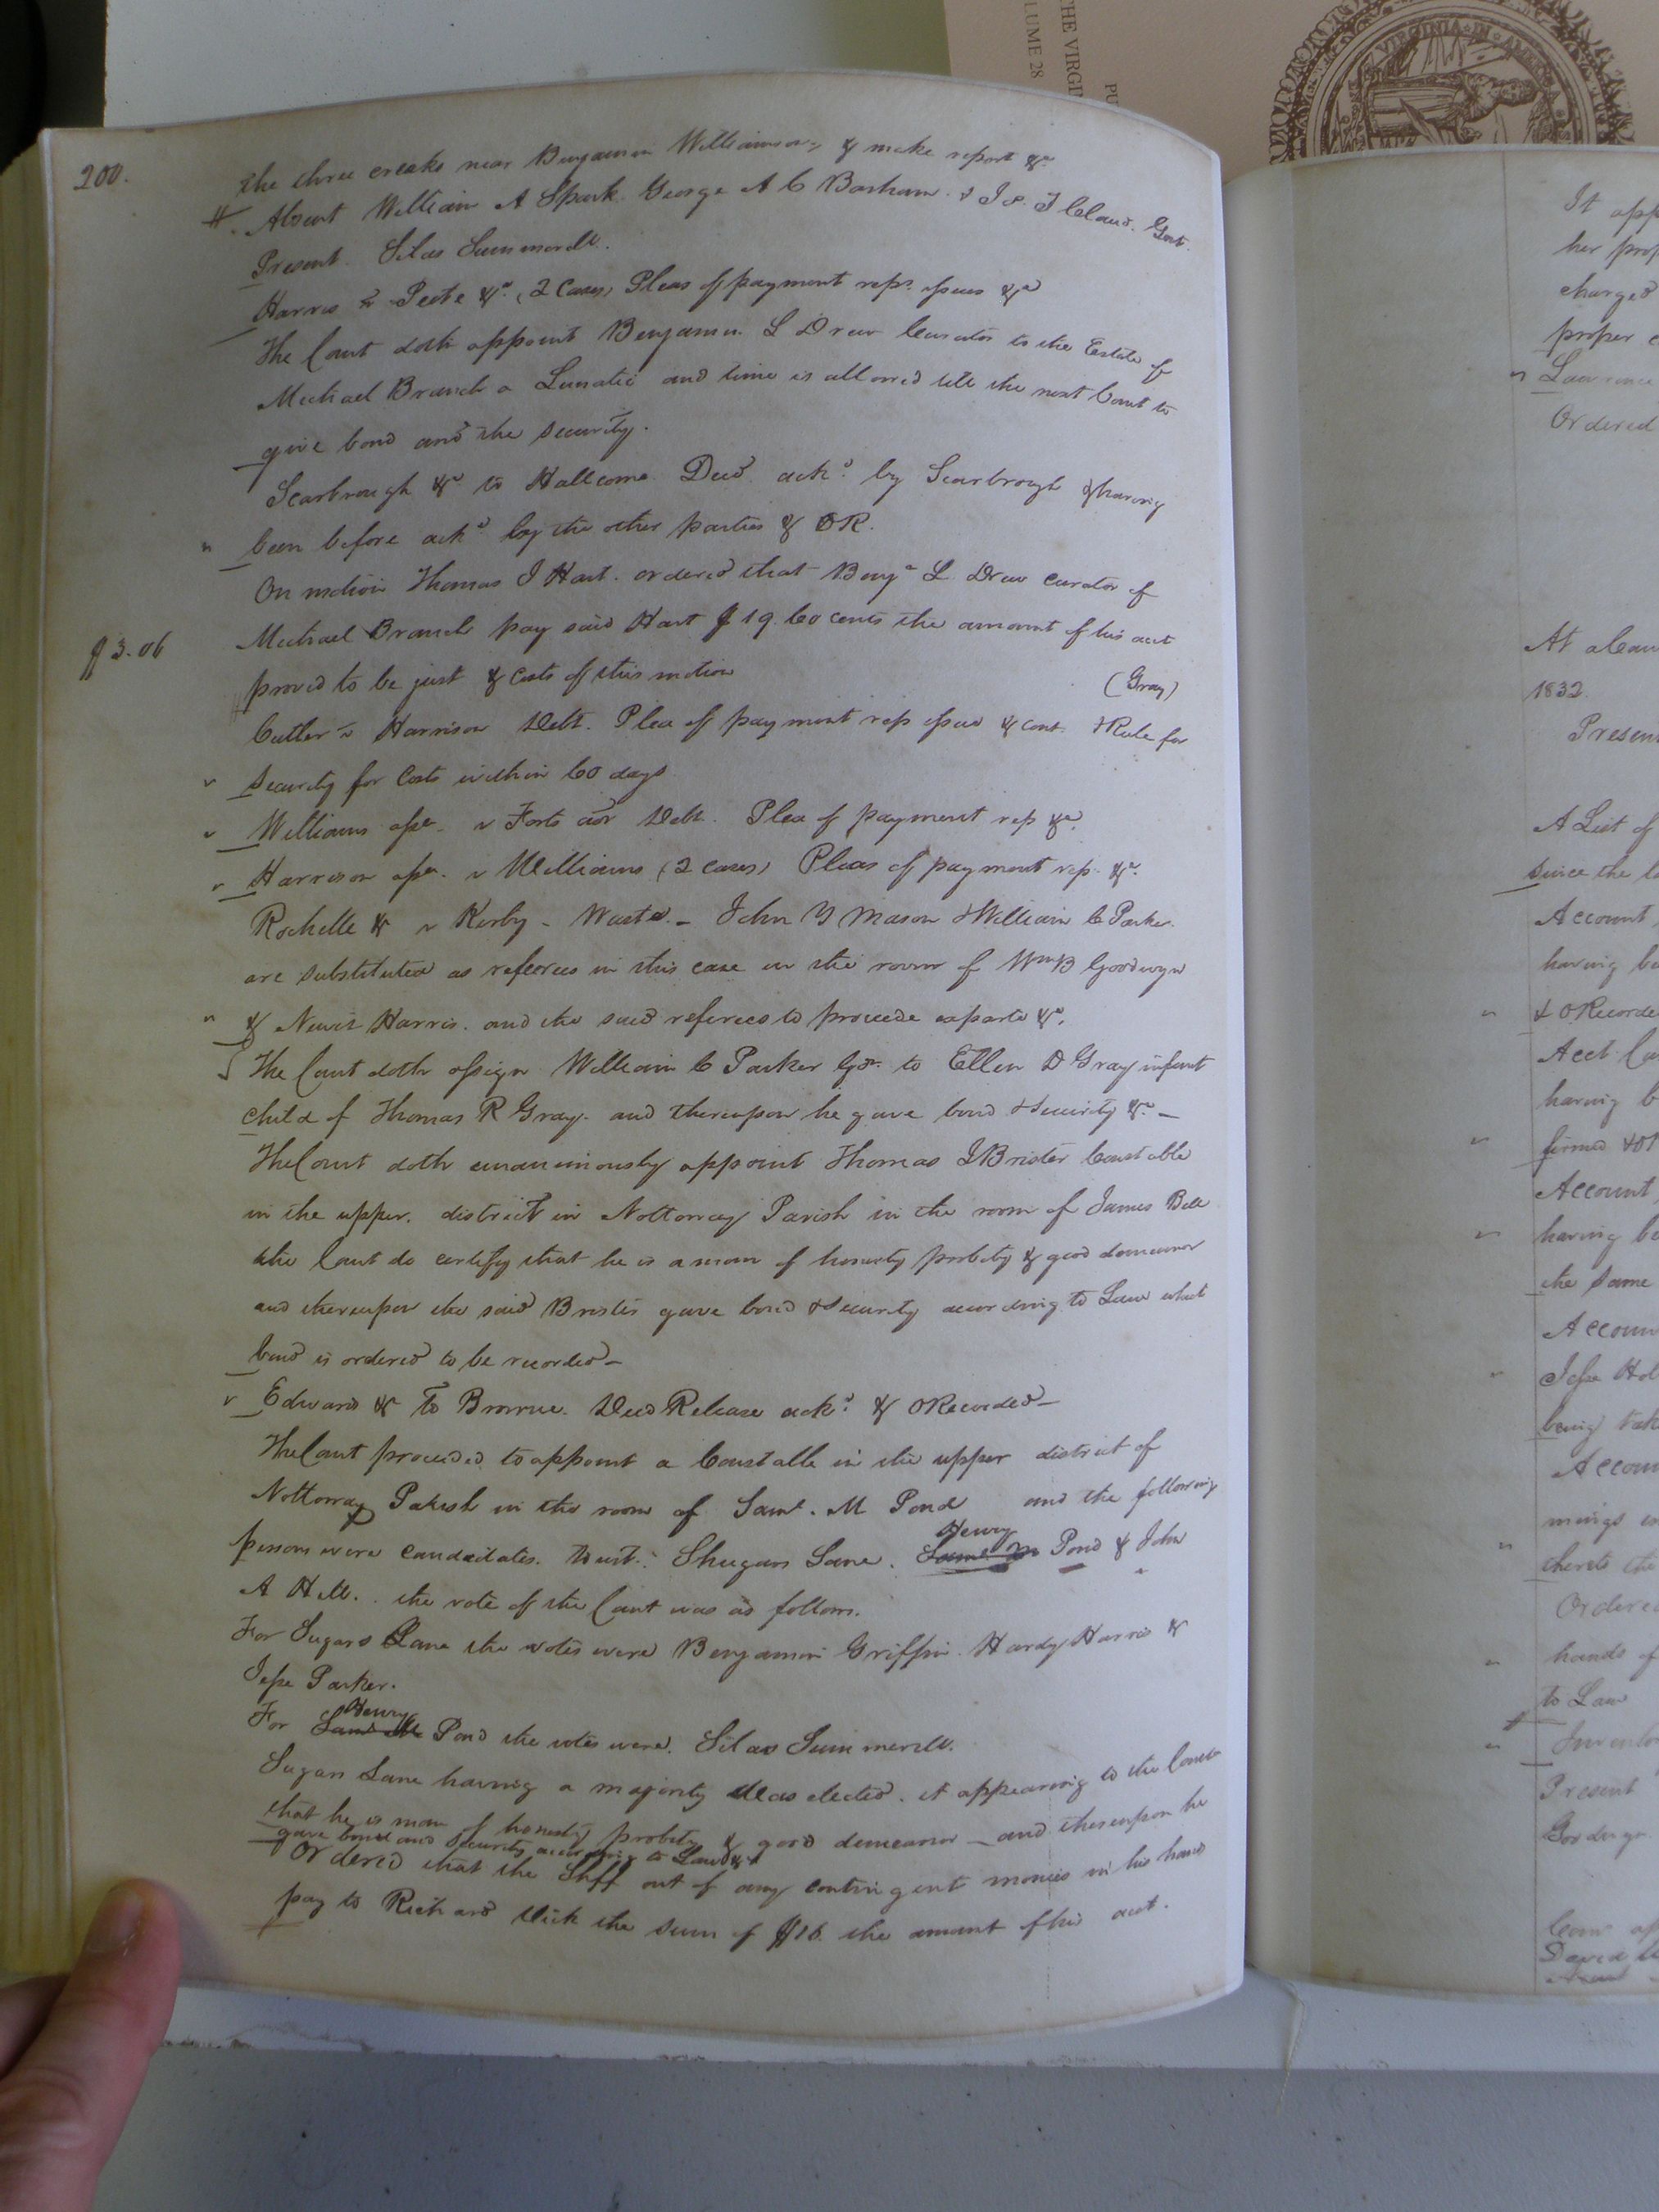 THE VIRGI
LUME 28
PU
VIRGINIA
200.
the three creaks near Benjamin Williamson, & make report &c
Absent William A Spark. George A C Barham. & J T Claud. Gent.
Present. Silas Summerell.
Harris v Peete &c. (2 Cases) Pleas of payment rep. issues &c
The Court doth appoint Benjamin L Drew Curator to the Estate of
Michael Branch a Lunatic and time is allowed till the next Court to
give bond and the security.
Scarbrough &c to Hallcome Deed ackd. by Scarbrough & having
been before ackd by the other parties & OR.
On motion Thomas J Hart. ordered that Benja L. Drew curator of
$3.06
Michael Branch pay said Hart $19.60 cents the amount of his acct
proved to be just & Costs of this motion (Gray)
Cutler v Harrison Debt. Plea of payment rep issue & cont. & Rule for
security for Costs within 60 days
Williams assee. v Forts Debt. Plea of payment rep &c.
Harrison assee. v Williams (2 cases) Pleas of payment rep. &c.
Rochelle & v Kirby - John Y Mason & William C Parker
are substituted as referees in this case in the room of Wm B Goodwyn
& Newit Harris. and the said referees to procede exparte &c.
The Court doth assign William C Parker Gdn. to Ellen D Gray infant
child of Thomas R Gray. and thereupon he gave bond & security &c. -
The Court doth unanimously appoint Thomas J Brister Constable
in the upper. district in Nottoway Parish in the room of James Bell
the Court do certify that he is a man of honesty probity & good demeanor
and thereupon the said Brister gave bond & security according to Law which
bond is ordered to be recorded -
Edwards &c To Browne. Deed Release ackd. & ORecorded -
The Court proceeded to appoint a Constable in the upper district of
Nottoway Parish in the room of Saml. M Pond and the following
Henry
persons were candidates. to wit: Shugars Lane. Saml M Pond & John
A Hill. the vote of the Court was as follows.
For Sugars Lane the votes were Benjamin Griffin. Hardy Harris &
Jesse Parker.
Henry
For Saml M Pond the votes were. Silas Summerell.
Sugars Lane having a majority was elected. it appearing to the Court
that he is man of honesty probity & good demeanor - and thereupon he
gave bond and security according to Law &c
Ordered that the Shff out of any contingent monies in his hand
pay to Richard the sum of $16 the amount of his acct.
It app
her prop
charged
proper
Lawrence
Ordered
At a Cou
1832.
Present
A List of
since the
Account
having be
& ORecorde
Acct
having b
firmed & OR
Account
having be
the same
Accoun
Jesse Hol
being tak
Accoun
mings
thereto the
Ordered
hands of
to Law
Inventor
Present